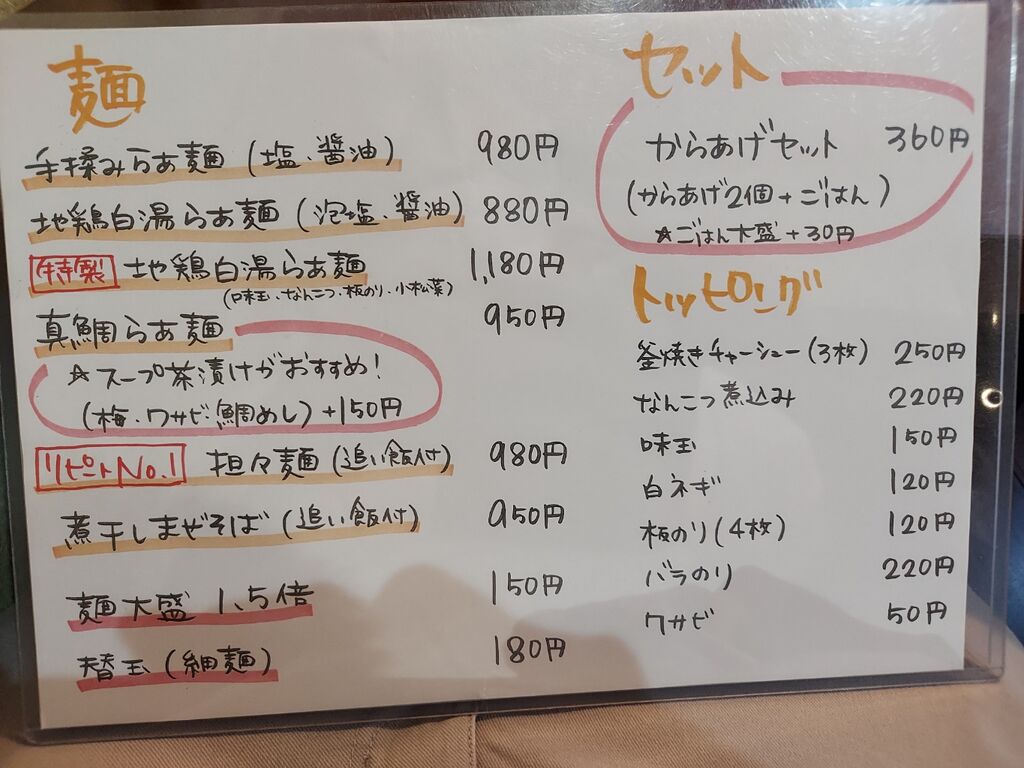 麺
手揉みらぁ麺(塩、醤油) 980円
地鶏白湯らぁ麺(泡塩、醤油) 880円
特製 地鶏白湯らぁ麺 1,180円
(味玉、なんこつ、板のり、小松菜)
真鯛らぁ麺 950円
☆スープ茶漬けがおすすめ!
(梅・ワサビ・鯛めし)+150円
リピートNo.1 担々麺(追い飯付) 980円
煮干しまぜそば(追い飯付) 950円
麺大盛 1.5倍 150円
替玉(細麺) 180円
セット
からあげセット 360円
(からあげ2個+ごはん)
☆ごはん大盛+30円
トッピング
釜焼きチャーシュー(3枚) 250円
なんこつ煮込み 220円
味玉 150円
白ネギ 120円
板のり(4枚) 120円
バラのり 220円
ワサビ 50円